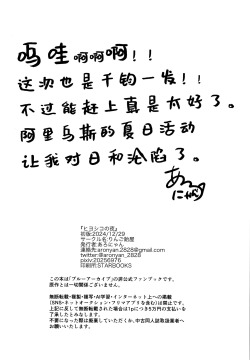 呜哇啊啊啊！！
这次也是千钧一发！！
不过能赶上真是太好了。
阿里乌斯的夏日活动
让我对日和沦陷了。
あろ
にゃん
『ヒヨシコの夜』
初版:2024/12/29
サークル名:りんご飴屋
発行者:あろにゃん
連絡先:aronyan.2828@gmail.com
twitter@aronyan_2828
pixiv20256976
印刷所:STARBOOKS
この本は「ブルーアーカイブ」の非公式ファンブックです。
原作とは一切関係ございません。
無断転載・複製・複写・AI学習・インターネット上への掲載
(SNS・ネットオークション・フリマアプリを含む)は禁止です。
上記に反して無断転載された場合は1pにつき5万円の支払いを
了承したとみなします。
不要になった際は廃棄していただくか、中古同人誌取扱業者へ
お願いいたします。